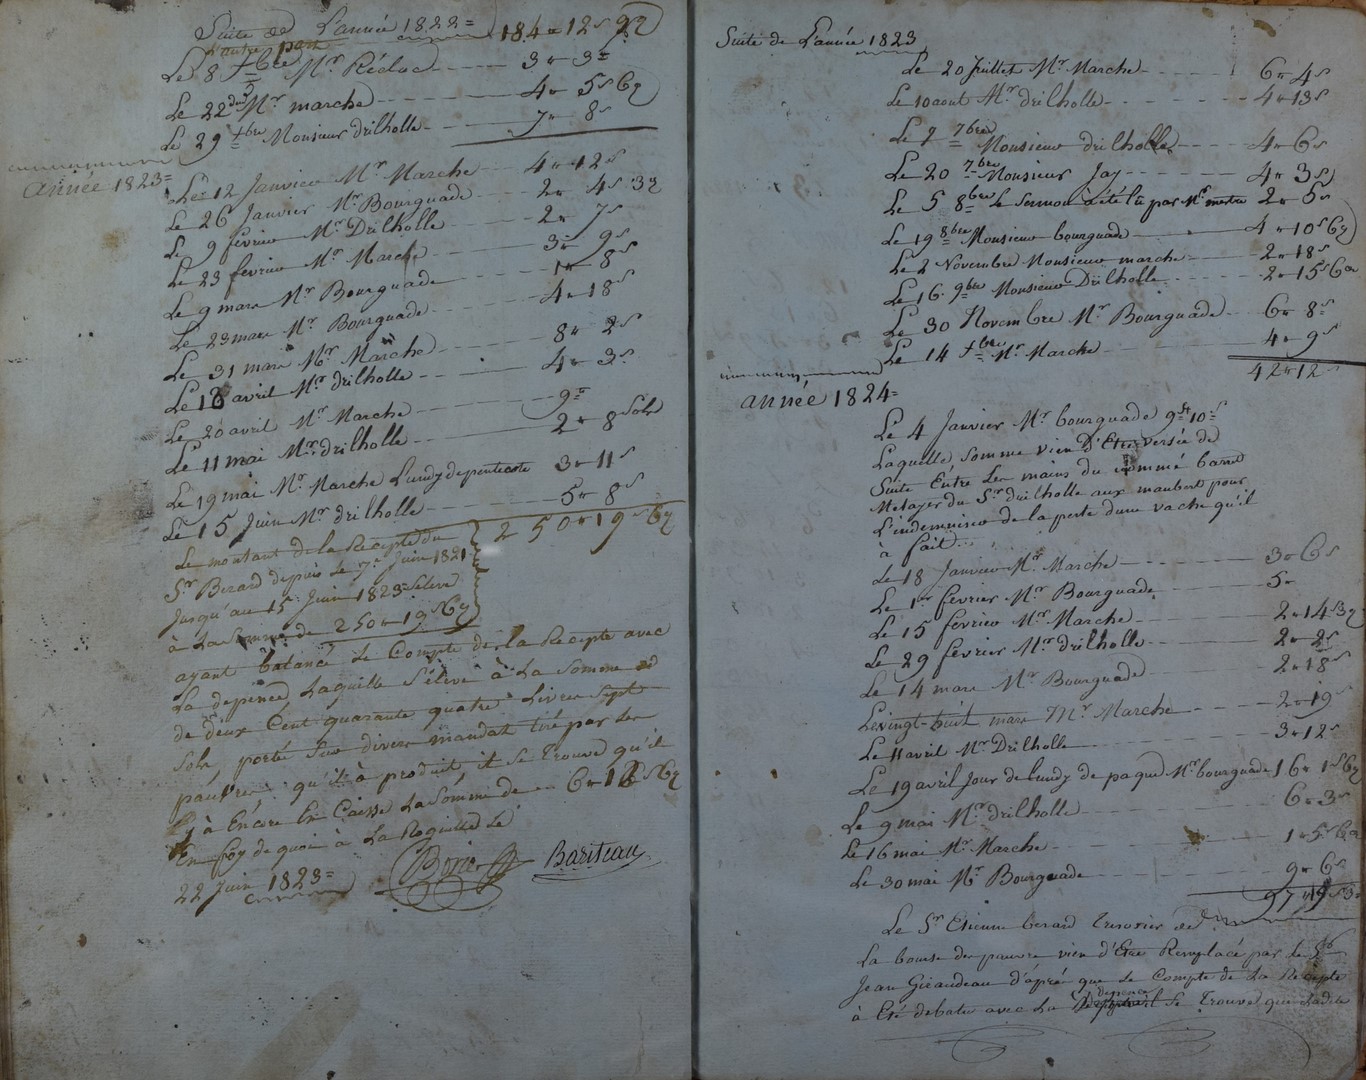 Suite de L'année 1822= 184 " 12ˢ 9₰
L'autre part
Le 8 Xbre Mr Réclus 3 " 3=
Le 22 du d Mr marche 4 " 5ˢ 6₰
Le 29 Xbre Monsieur drilholle 7 " 8ˢ
année 1823=
Le 12 Janvier Mr Marche 4 " 12ˢ
Le 26 Janvier Mr Bourguade 2 " 4ˢ 3₰
Le 9 fevrier Mr Drilholle 2 " 7ˢ
Le 23 fevrier Mr Marche 3 " 9ˢ
Le 9 mars Mr Bourguade 1 " 8ˢ
Le 23 mars Mr Bourguade 4 " 18ˢ
Le 31 mars Mr Marche 8 " 2ˢ
Le 18 avril Mr drilholle 4 " 3ˢ
Le 20 avril Mr Marche 9=
Le 11 mai Mr drilholle 2 " 8 Sols
Le 19 mai Mr Marche Lundy de pentecote 3 " 11ˢ
Le 15 Juin Mr drilholle 5 " 8ˢ
250 " 19ˢ 6₰
Le montant de la Recepte du
Sr Berard depuis le 7e Juin 1821
Jusqu'au 15 Juin 1823 S'eleve
à La Somme de 250 " 19ˢ 6₰
ayant balancé Le Compte de la Recepte avec
La depence, Laquelle S'éleve à La Somme
de deux Cent quarante quatre Livres Sept
Sols, porté Sur divers mandat tiré par Les
pauvre qu'il à produit, il se trouve qu'il
y à Encore En Caisse La Somme de 6 " 12ˢ 6₰
En foy de quoi à La Roquille Le
22 Juin 1823=
Bariteau
Suite de L'année 1823
Le 20 Juillet Mr Marche 6 " 4ˢ
Le 10 aout Mr drilholle 4 " 13ˢ
Le 7 7bre Monsieur drilholle 4 " 6ˢ
Le 20 7bre Monsieur Jay 4 " 3ˢ
Le 5 8bre Le Sermon à été lû par Mr mestre 2 " 5ˢ
Le 19 8bre Monsieur bourguade 4 " 10ˢ 6₰
Le 2 Novembre Monsieur marche 2 " 18ˢ
Le 16 9bre Monsieur Drilholle 2 " 15ˢ 6₰
Le 30 Novembre Mr Bourguade 6 " 8ˢ
Le 14 Xbre Mr Marche 4 " 9ˢ
42 " 12ˢ
année 1824=
Le 4 Janvier Mr bourguade 9tt 10ˢ
Laquelle Somme vien D'Etre versée de
Suite Entre Les mains du nommé
Metayer du Sr drilholle aux maubert pour
L'indemniser de la perte d'une vache qu'il
à fait
Le 18 Janvier Mr Marche 3 " 6ˢ
Le 1er fevrier Mr Bourguade 5 "
Le 15 fevrier Mr Marche 2 " 14ˢ 3₰
Le 29 fevrier Mr drilholle 2 " 2ˢ
Le 14 mars Mr Bourguade 2 " 18ˢ
Le vingt-huit mars Mr Marche 2 " 19
Le 11 avril Mr Drilholle 3 " 12ˢ
Le 19 avril Jour de Lundy de paque Mr bourguade 16 " 1ˢ 6₰
Le 9 mai Mr drilholle 6 " 3ˢ
Le 16 mai Mr Marche 1 " 5ˢ 6₰
Le 30 mai Mr Bourguade 9 " 6ˢ
97 " 19ˢ 3₰
Le Sr Etienne berard Tresorier de
La bourse des pauvre vien d'Etre Remplacé par le Sr
Jean Giraudeau d'aprés que Le Compte de La Recepte
à Eté debatu avec La depence Se Trouve que Ladite